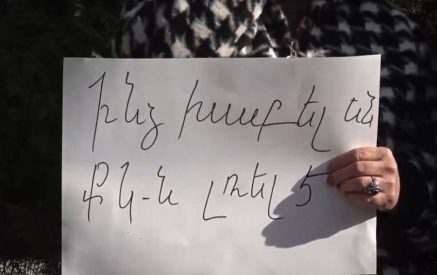 ինչ խաբել ան
ՔԿ-ն լռել է